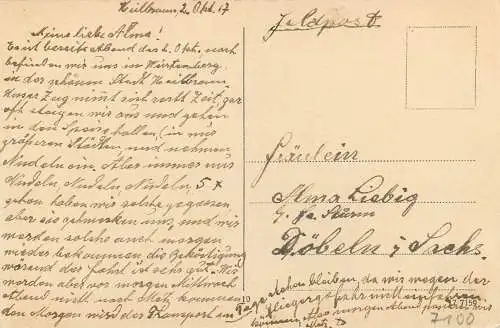 Heilbronn, 2. Okt. 17
Feldpost
Meine liebe Alma!
Es ist bereits Abend des 2. Okt. noch
befinden wir uns in Würtemberg,
in der schönen Stadt Heilbronn.
Unser Zug nimmt sich recht Zeit, gar
oft steigen wir aus und gehen
in den Speisehallen, (in nur
größeren Städten) und nehmen
Nudeln ein. Also immer nur
Nudeln, Nudeln, Nudeln, 5 x
schon haben wir solche gegessen
aber sie schmecken uns, und wir
werden solche auch morgen
wieder bekommen, die Beköstigung
während der Fahrt ist sehr gut. Wir
werden aber vor morgen Mittwoch
Abend nicht nach Metz kommen
den Morgen wird der Transport am
Tage schon bleiben, da wir wegen der
Fliegergefahr nicht einfahren
können, also morgen Abend
Fräulein
Alma Liebig
Döbeln i/ Sachs.
10
7100